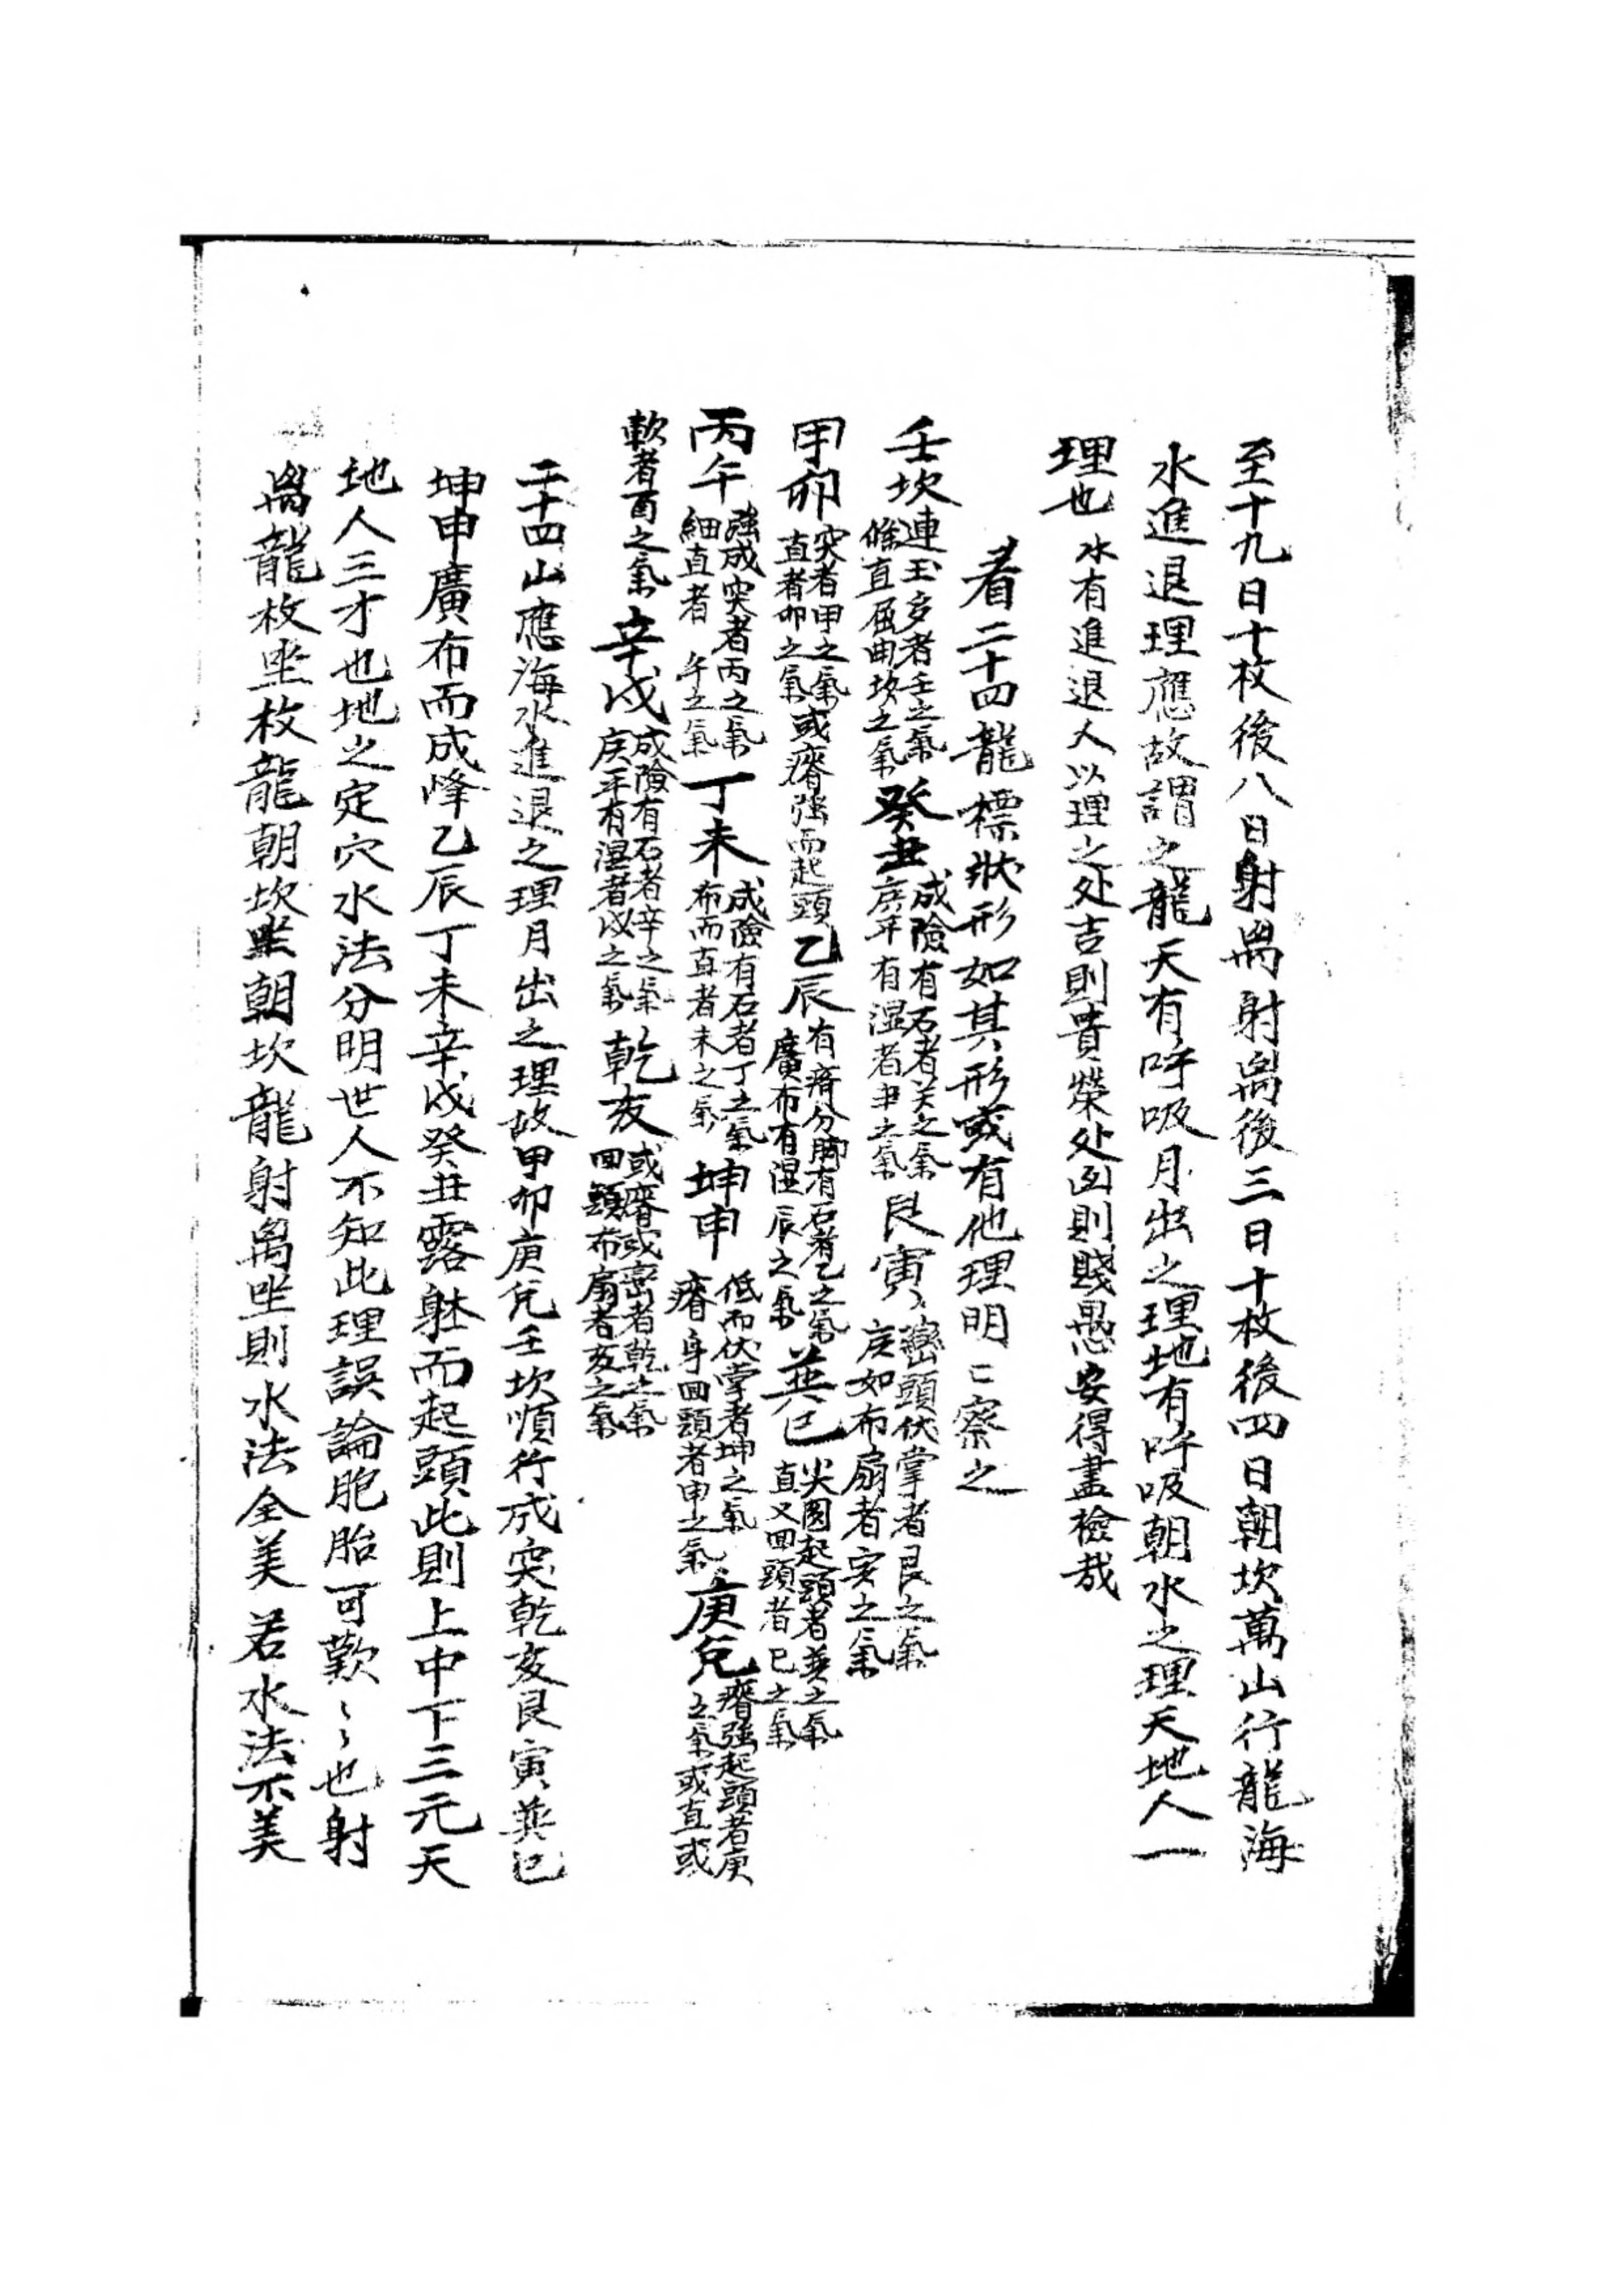 至十九日十枚後八日射禺射禺後三日十枚後四日朝坎萬山行龍海
水進退理應故謂之龍天有呼吸月出之理地有呼吸朝水之理天地人一
理也水有進退人以理之处吉則貴榮处凶則賤愚安得盡檢哉
看二十四龍標狀形如其形或有他理明〻察之
壬坎連玉多者壬之氣
條直屈曲坎之氣癸丑成險有石者癸之氣
庆年有湿者丑之氣艮寅巒頭伏掌者艮之氣
庆如布扇者寅之氣
甲卯突者甲之氣
直者卯之氣或瘠强而起頭乙辰有瘠分脚有石者乙之氣
廣布有湿辰之氣巽巳尖圓起頭者巽之氣
直又回頭者巳之氣
丙午强成突者丙之氣
細直者午之氣丁未成險有石者丁之氣
布而直者未之氣坤申低而伏掌者坤之氣
瘠身回頭者申之氣庚兌瘠强起頭者庚
之氣或直或
軟者酉之氣辛戌成險有石者辛之氣
庆年有湿者戌之氣乾亥或瘠或巒者乾之氣
回頭布扇者亥之氣
二十四山應海水進退之理月出之理故甲卯庚兌壬坎順行成突乾亥艮寅巽巳
坤申廣布而成峰乙辰丁未辛戌癸丑露躰而起頭此則上中下三元天
地人三才也地之定穴水法分明世人不知此理誤論胞胎可歎〻〻也射
禺龍枚坐枚龍朝坎坐朝坎龍射禺坐則水法全美若水法不美